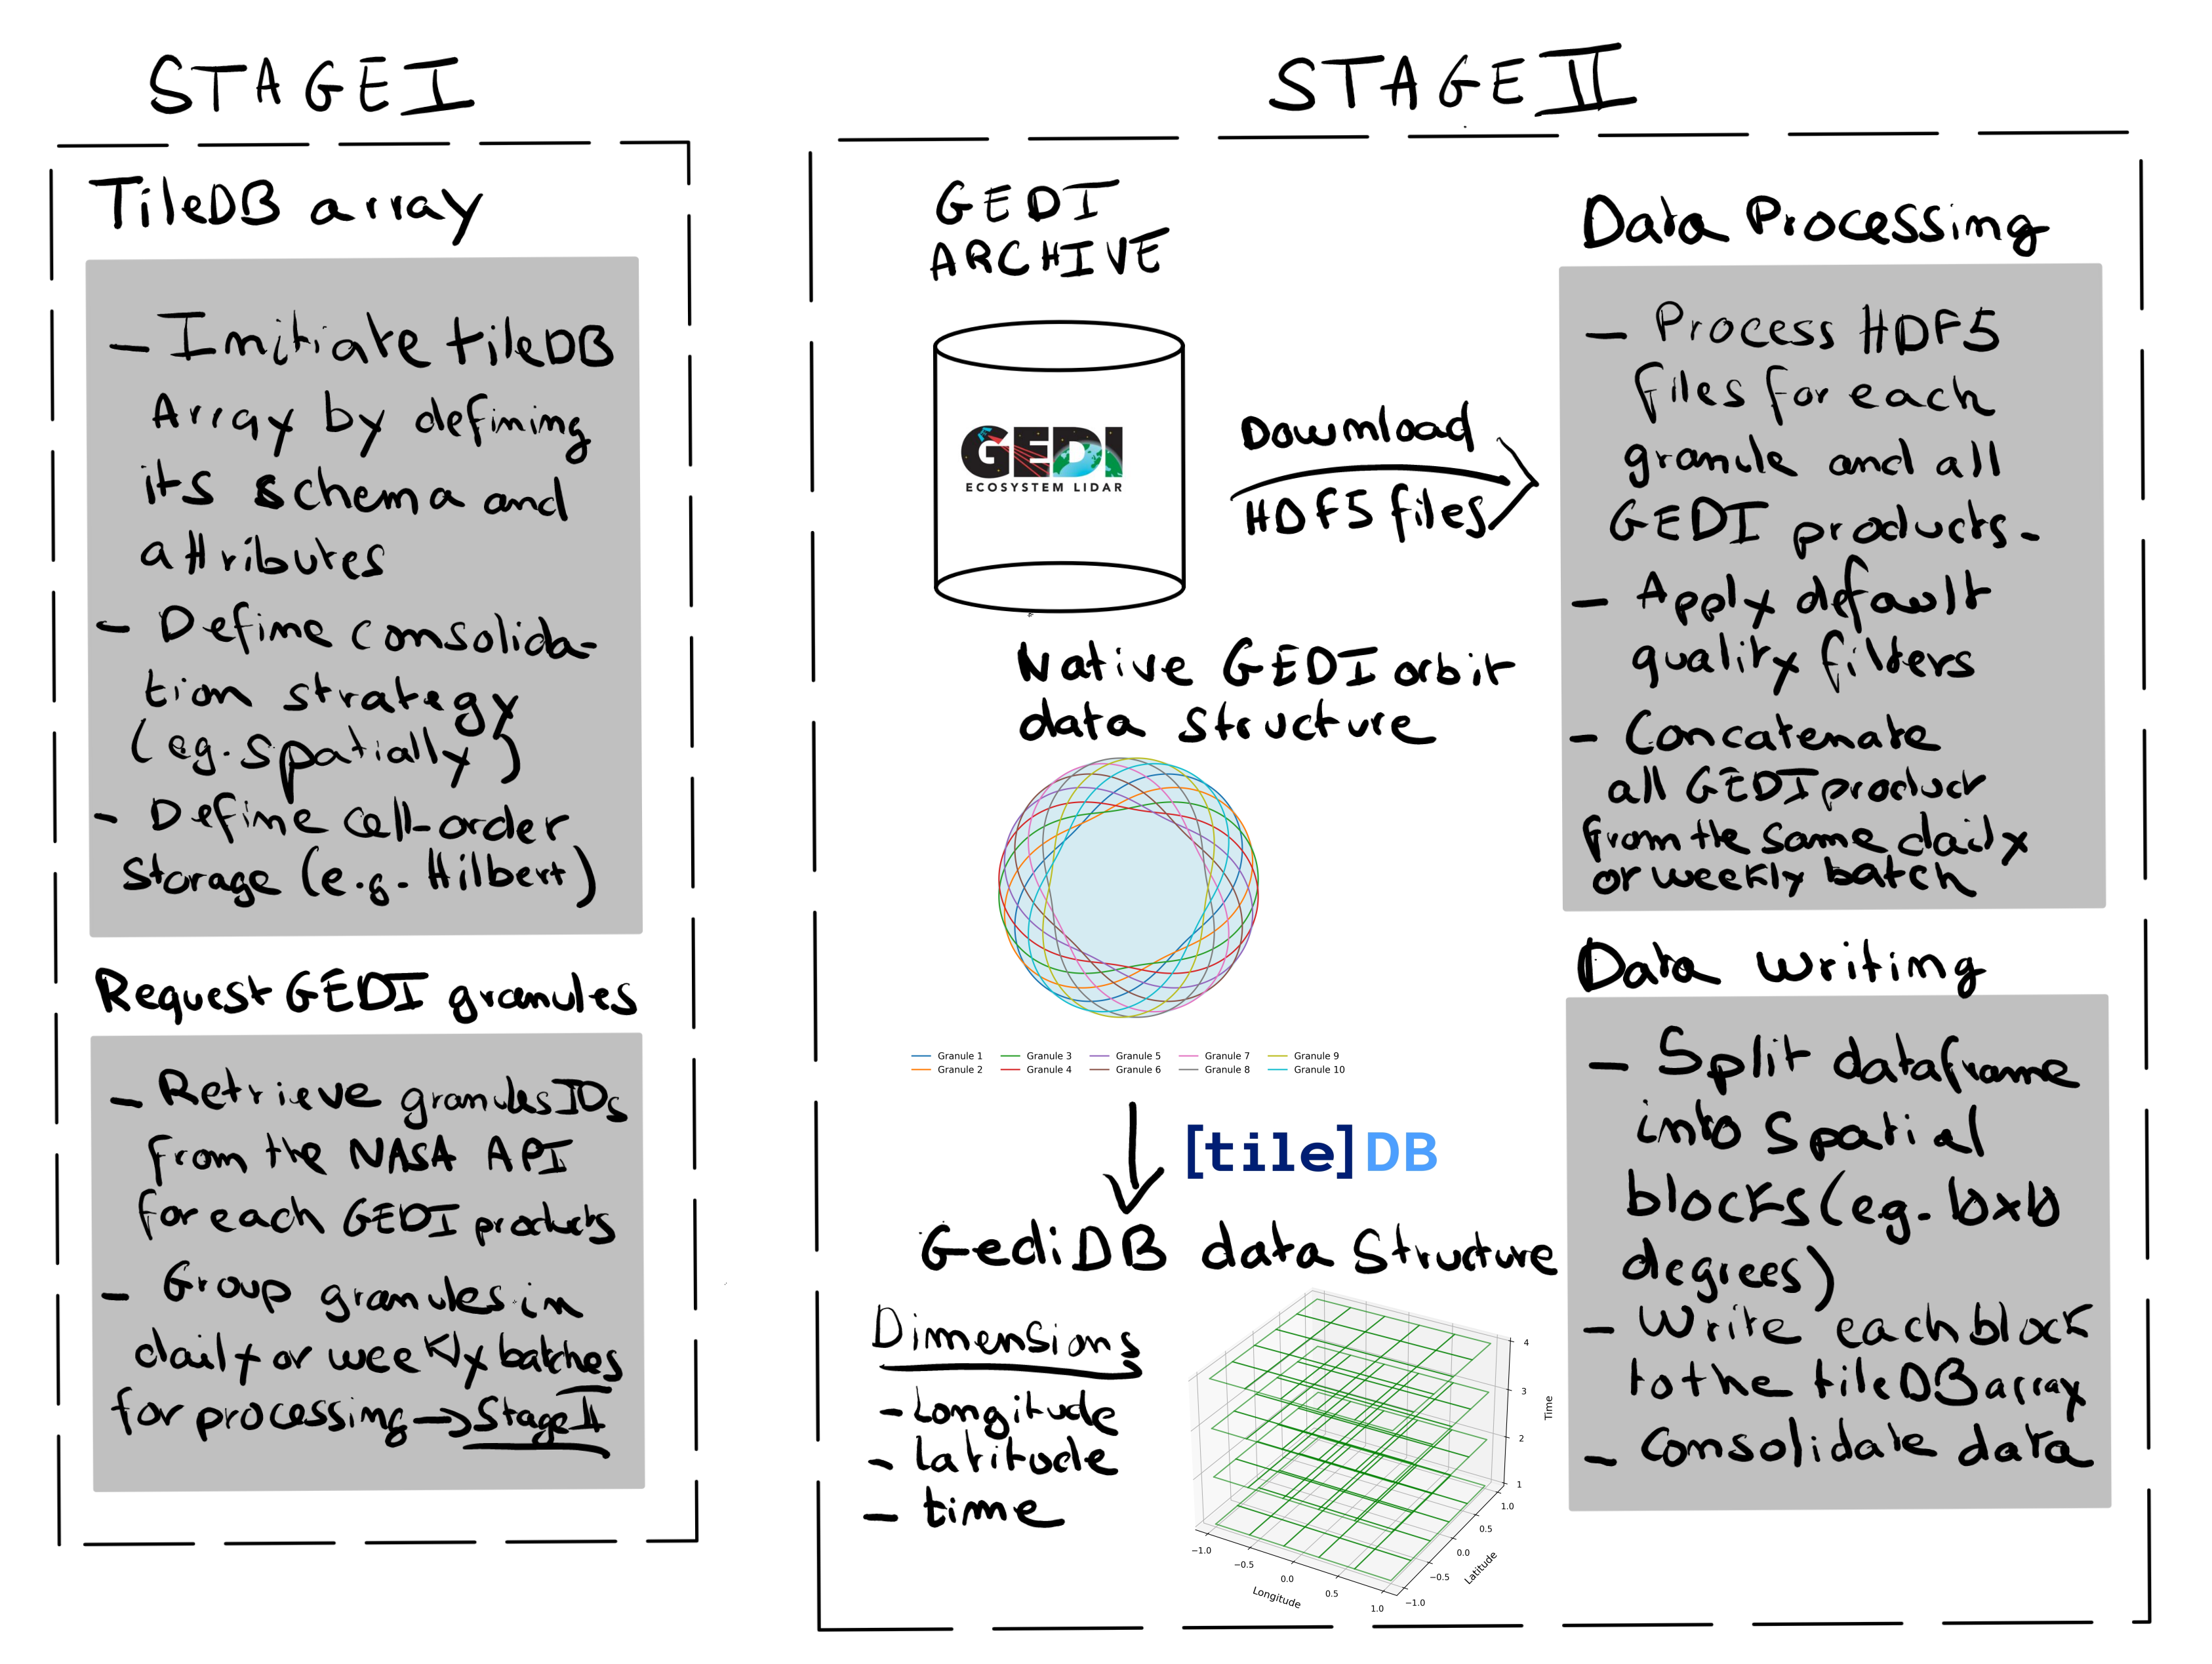 STAGE I
TileDB array
- Initiate tileDB
Array by defining
its schema and
attributes
- Define consolida-
tion strategy
(eg. spatially)
- Define cell-order
storage (e.g. Hilbert)
Request GEDI granules
- Retrieve granules IDs
from the NASA API
for each GEDI products
- Group granules in
daily or weekly batches
for processing → Stage II
STAGE II
GEDI
ARCHIVE
GEDI
ECOSYSTEM LIDAR
Download
HDF5 files
Native GEDI orbit
data structure
Granule 1 Granule 3 Granule 5 Granule 7 Granule 9
Granule 2 Granule 4 Granule 6 Granule 8 Granule 10
[tile]DB
GediDB data structure
Dimensions
- Longitude
- Latitude
- time
4
3
2
1
Time
1.0
0.5
0.0
−0.5
−1.0
Latitude
−1.0
−0.5
0.0
0.5
1.0
Longitude
Data Processing
- Process HDF5
files for each
granule and all
GEDI products-
- Apply default
quality filters
- Concatenate
all GEDI product
from the same daily
or weekly batch
Data writing
- Split dataframe
into spatial
blocks (eg. 10x10
degrees)
- Write each block
to the tileDB array
- Consolidate data